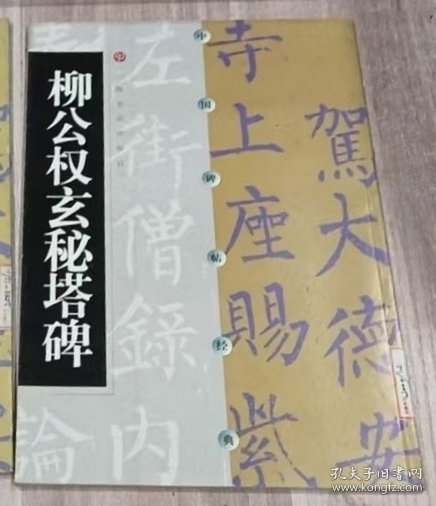 柳公权玄秘塔碑
中国碑帖经典
左街僧錄内
論
寺上座賜紫
駕大德安
孔夫子旧书网
www.kongfz.com